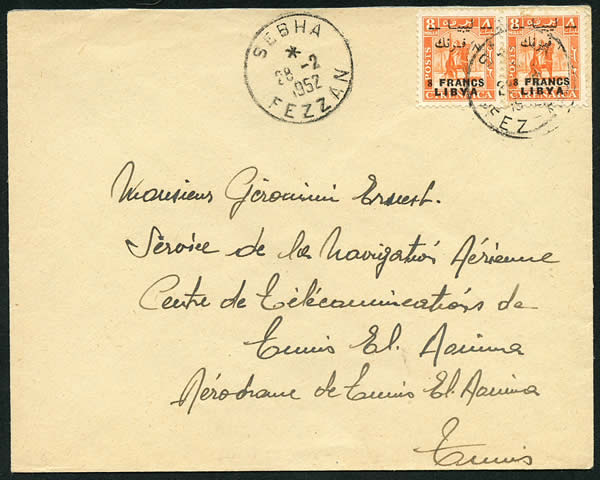 SEBHA
*
28 -2
1952
FEZZAN
8 ليبيا ٨
فرنك
POSTES
8 FRANCS
LIBYA
8 ليبيا ٨
فرنك
POSTES
8 FRANCS
LIBYA
Monsieur Géronimi Ernest.
Sérvice de la Navigation Aérienne
Centre de Télécomunications de
Tunis El. Aouina
Aérodrome de Tunis El. Aouina
Tunis